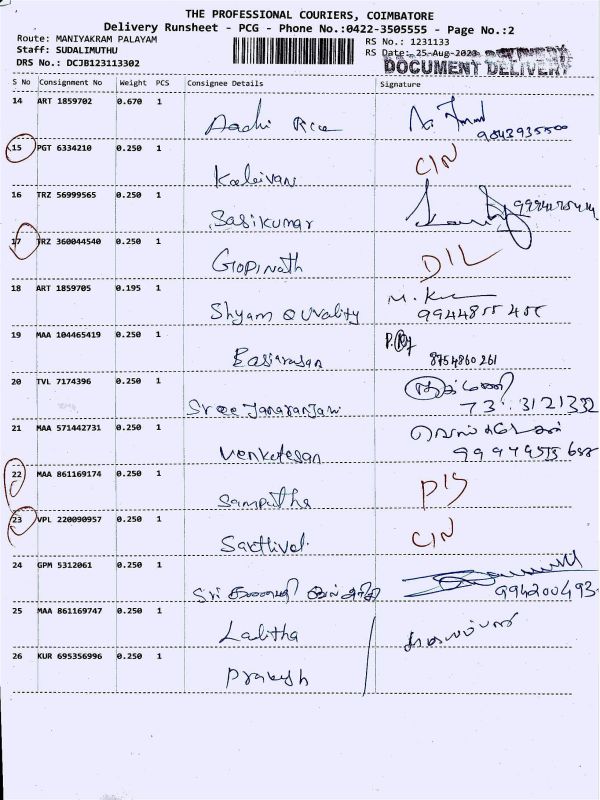 THE PROFESSIONAL COURIERS, COIMBATORE
Delivery Runsheet - PCG - Phone No.:0422-3505555 - Page No.:2
Route: MANIYAKRAM PALAYAM
RS No.: 1231133
Staff: SUDALIMUTHU
RS Date: 25-Aug-2023
DRS No.: DCJB123113302
DOCUMENT DELIVERY
S No Consignment No Weight PCS Consignee Details Signature
14 ART 1859702 0.670 1
Aachi Rice
9843935500
15 PGT 6334210 0.250 1
CIN
Kaleivani
16 TRZ 56999565 0.250 1
Sasikumar
17 TRZ 360044540 0.250 1
Gopinath DIL
18 ART 1859705 0.195 1
M. K
Shyam Quality 9944855455
19 MAA 104465419 0.250 1
8754860261
20 TVL 7174396 0.250 1
Sree Janaranjani
21 MAA 571442731 0.250 1
Venkatesan
22 MAA 861169174 0.250 1
Sampaths PIS
23 VPL 220090957 0.250 1
Sakthivel CIN
24 GPM 5312061 0.250 1
Sri
25 MAA 861169747 0.250 1
Lalitha
26 KUR 695356996 0.250 1
Prakash